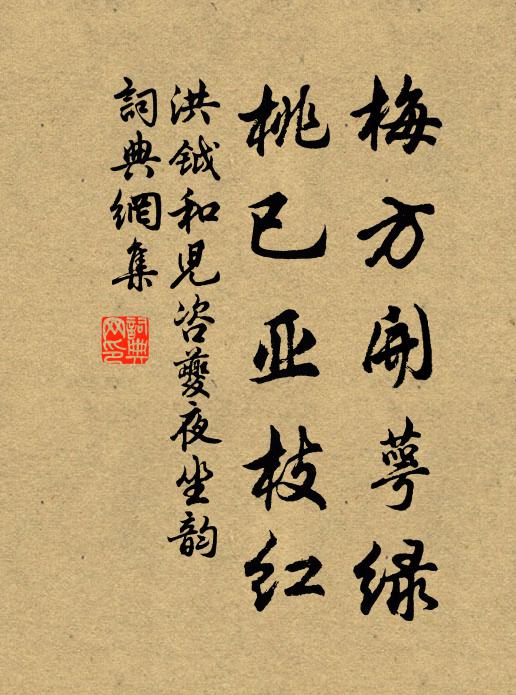 梅方开萼绿
桃已亚枝红
洪钺和児咨夔夜坐韵
詞典網集
詞典网印